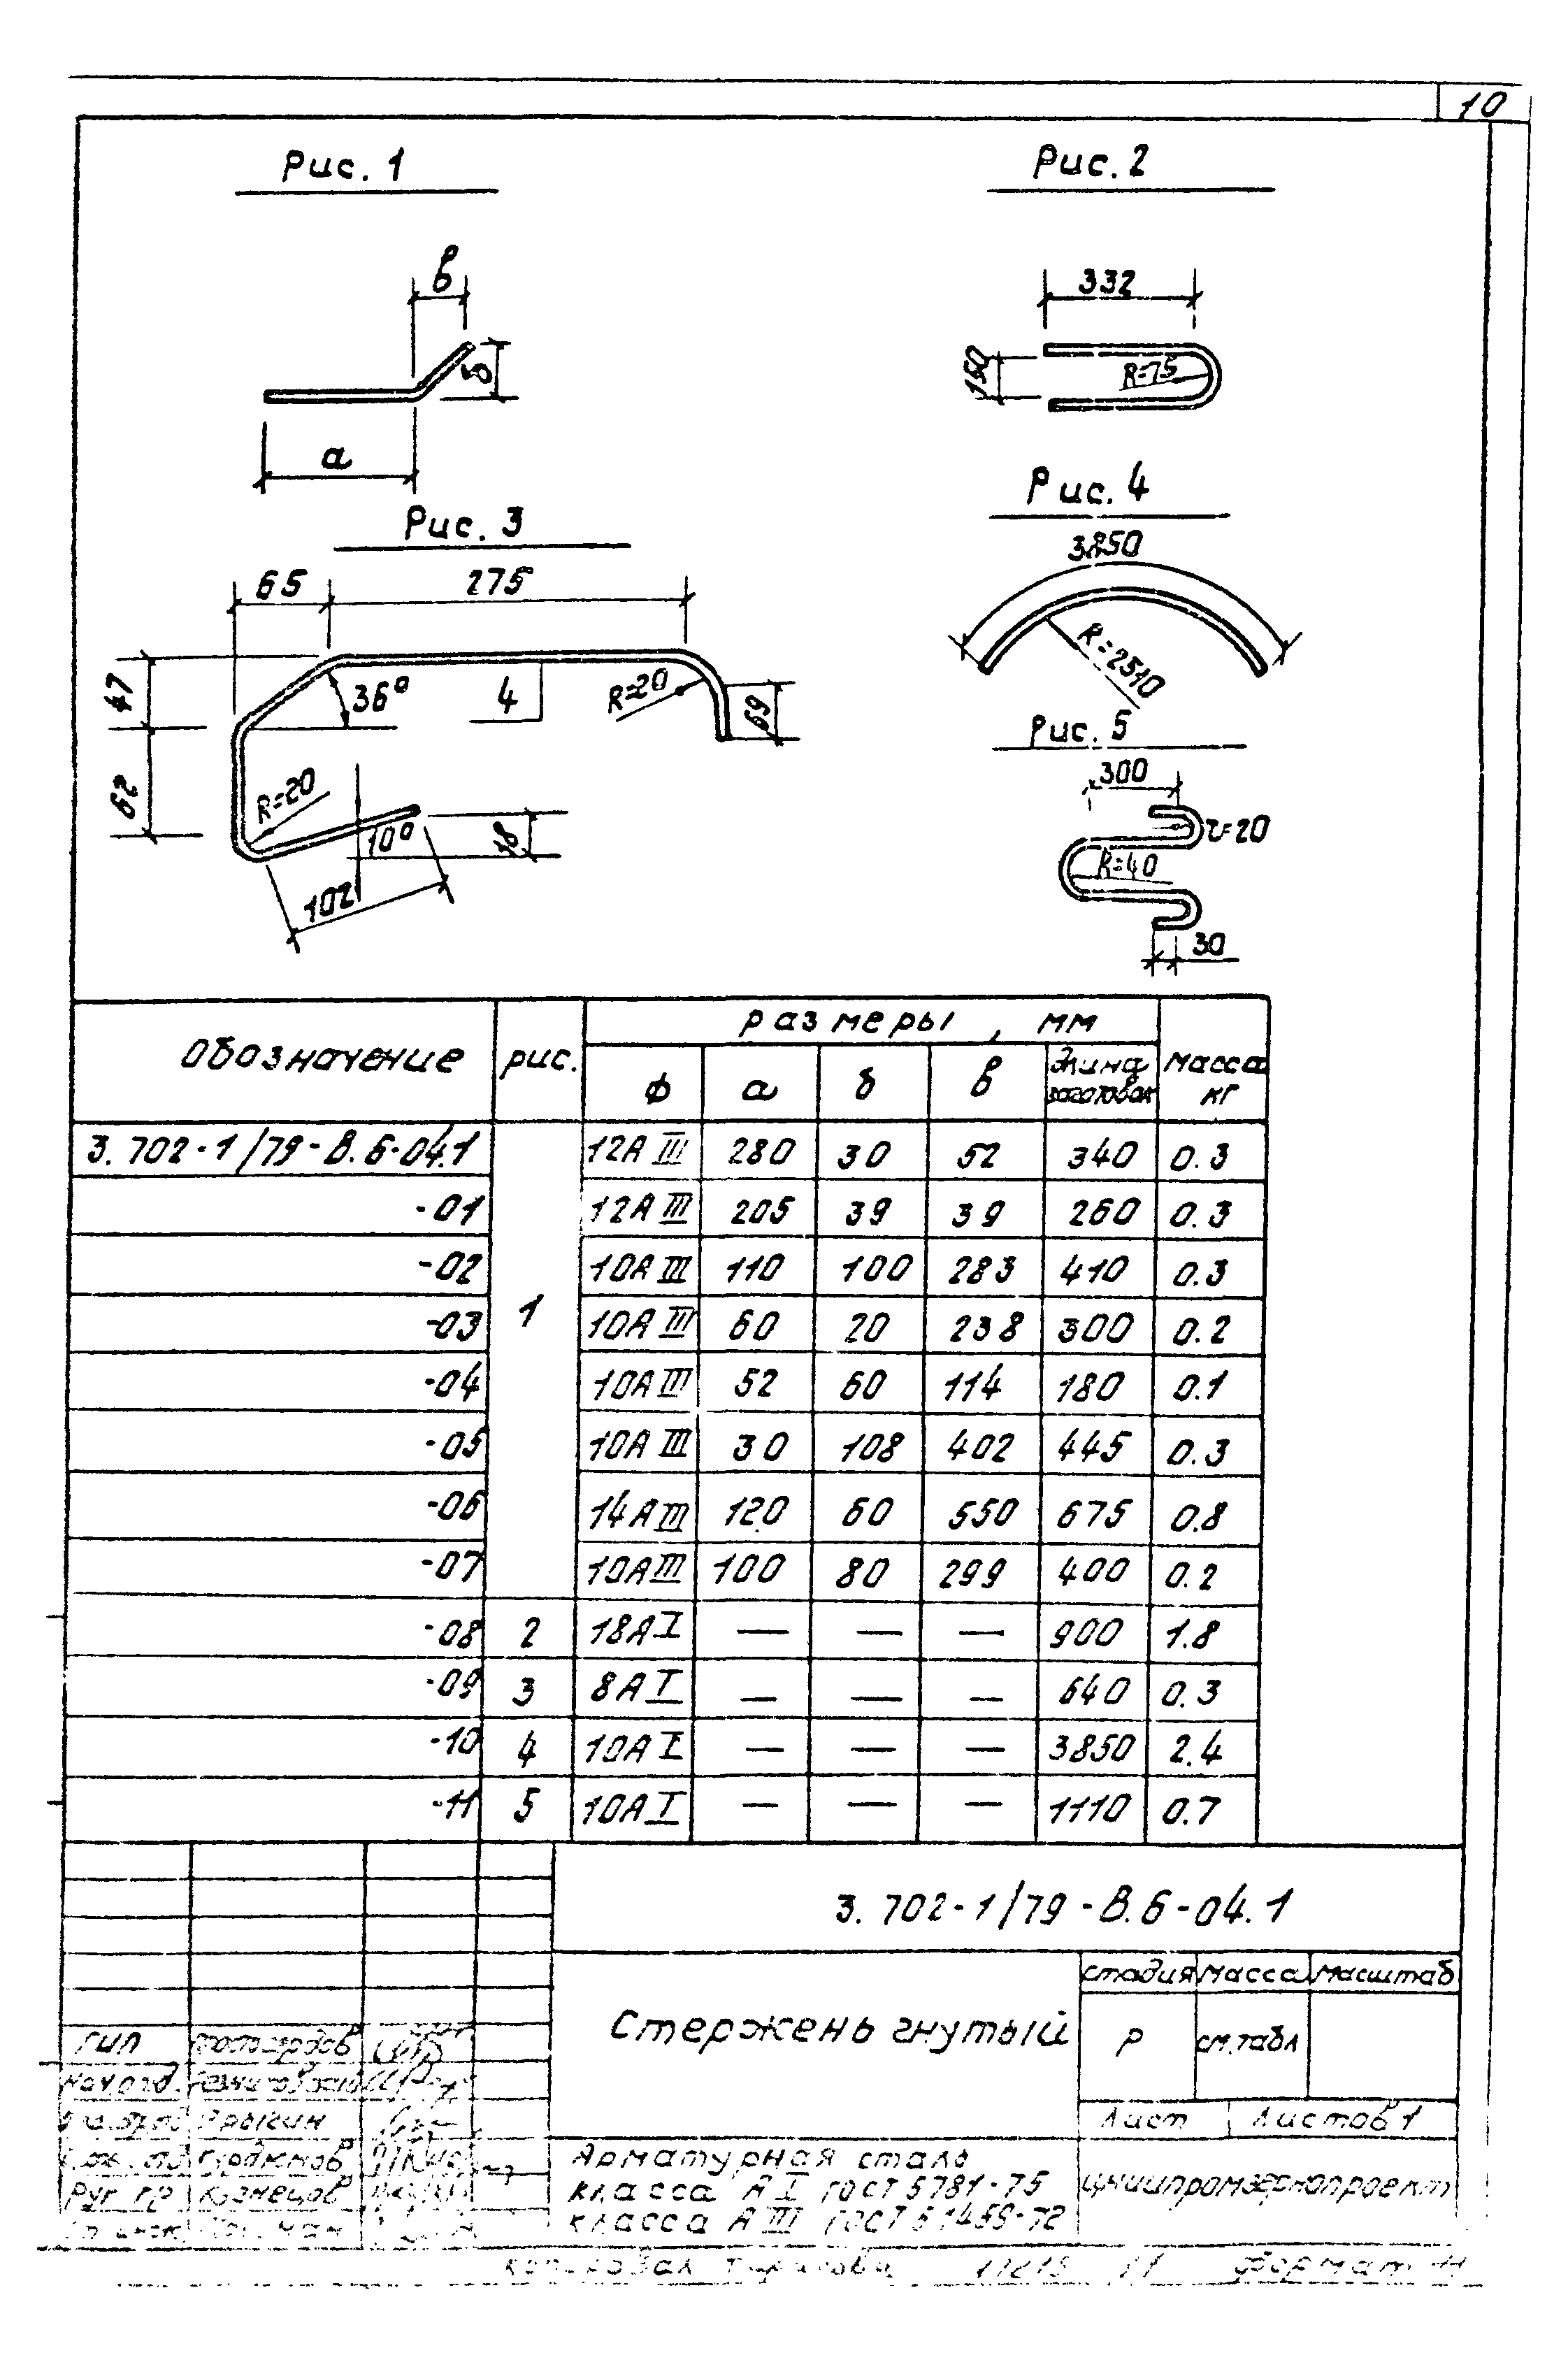 10
Рис. 1
Рис. 2
в
332
б
150
R=75
а
Рис. 4
Рис. 3
3850
65
275
R=2510
47
36°
4
R=20
69
Рис. 5
300
62
R=20
10°
18
r=20
R=40
102
30
Обозначение рис. размеры, мм масса кг
ф а б в Длина заготовки
3.702-1/79-В.6-04.1 1 12АIII 280 30 52 340 0.3
-01 12АIII 205 39 39 260 0.3
-02 10АIII 110 100 283 410 0.3
-03 10АIII 60 20 238 300 0.2
-04 10АIII 52 60 114 180 0.1
-05 10АIII 30 108 402 445 0.3
-06 14АIII 120 60 550 675 0.8
-07 10АIII 100 80 299 400 0.2
-08 2 18АI — — — 900 1.8
-09 3 8АI — — — 640 0.3
-10 4 10АI — — — 3850 2.4
-11 5 10АI — — — 1110 0.7
3.702-1/79-В.6-04.1
стадия масса масштаб
Стержень гнутый
Р см.табл
Лист Листов 1
гип
нач.отд.
Рук гр Кузнецов
Арматурная сталь
класса АI ГОСТ 5781-75
класса АIII ГОСТ 51459-72
цниипромзернопроект
копировал формат 11